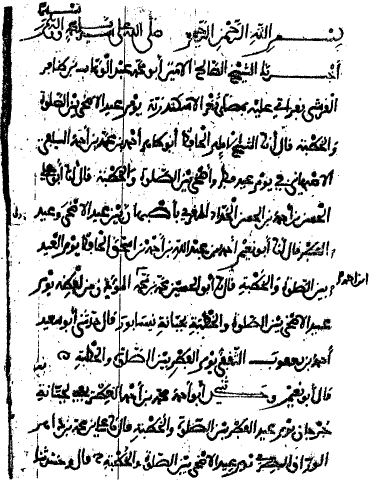 بسم الله الرحمن الرحيم صلى الله على سيدنا محمد
أخبرنا الشيخ الصالح الامير أبو محمد عبد الوهاب بن ظافر
القرشي بقراءتي عليه بمصلى ثغر الاسكندرية يوم عيد الاضحى بين الصلوة
والخطبة قال أنا الشيخ الحافظ أبو طاهر أحمد بن محمد بن أحمد السلفي
الاصبهاني في يوم عيد فطر وأضحى بين الصلوة والخطبة قال أنا أبو علي
الحسن بن أحمد بن الحسن الحداد المقرئ بأصبهان يوم عيد الاضحى وعيد
الفطر قال أنا أبو نعيم أحمد بن عبد الله بن أحمد بن اسحق الحافظ يوم العيد
بين الصلوة والخطبة قال أبو الحسين محمد بن من لفظه يوم
عيد الاضحى بين الصلوة والخطبة بجبانة نيسابور قال حدثني أبو سعيد
أحمد بن يعقوب الثقفي يوم الفطر بين الصلوة والخطبة
قال أبو نعيم وحدثني أبو أحمد محمد بن أحمد بجبانة
جرجان يوم عيد الفطر بين الصلوة والخطبة قال علي بن محمد بن
الوراق يوم عيد الاضحى بين الصلوة والخطبة قال وحدثنا